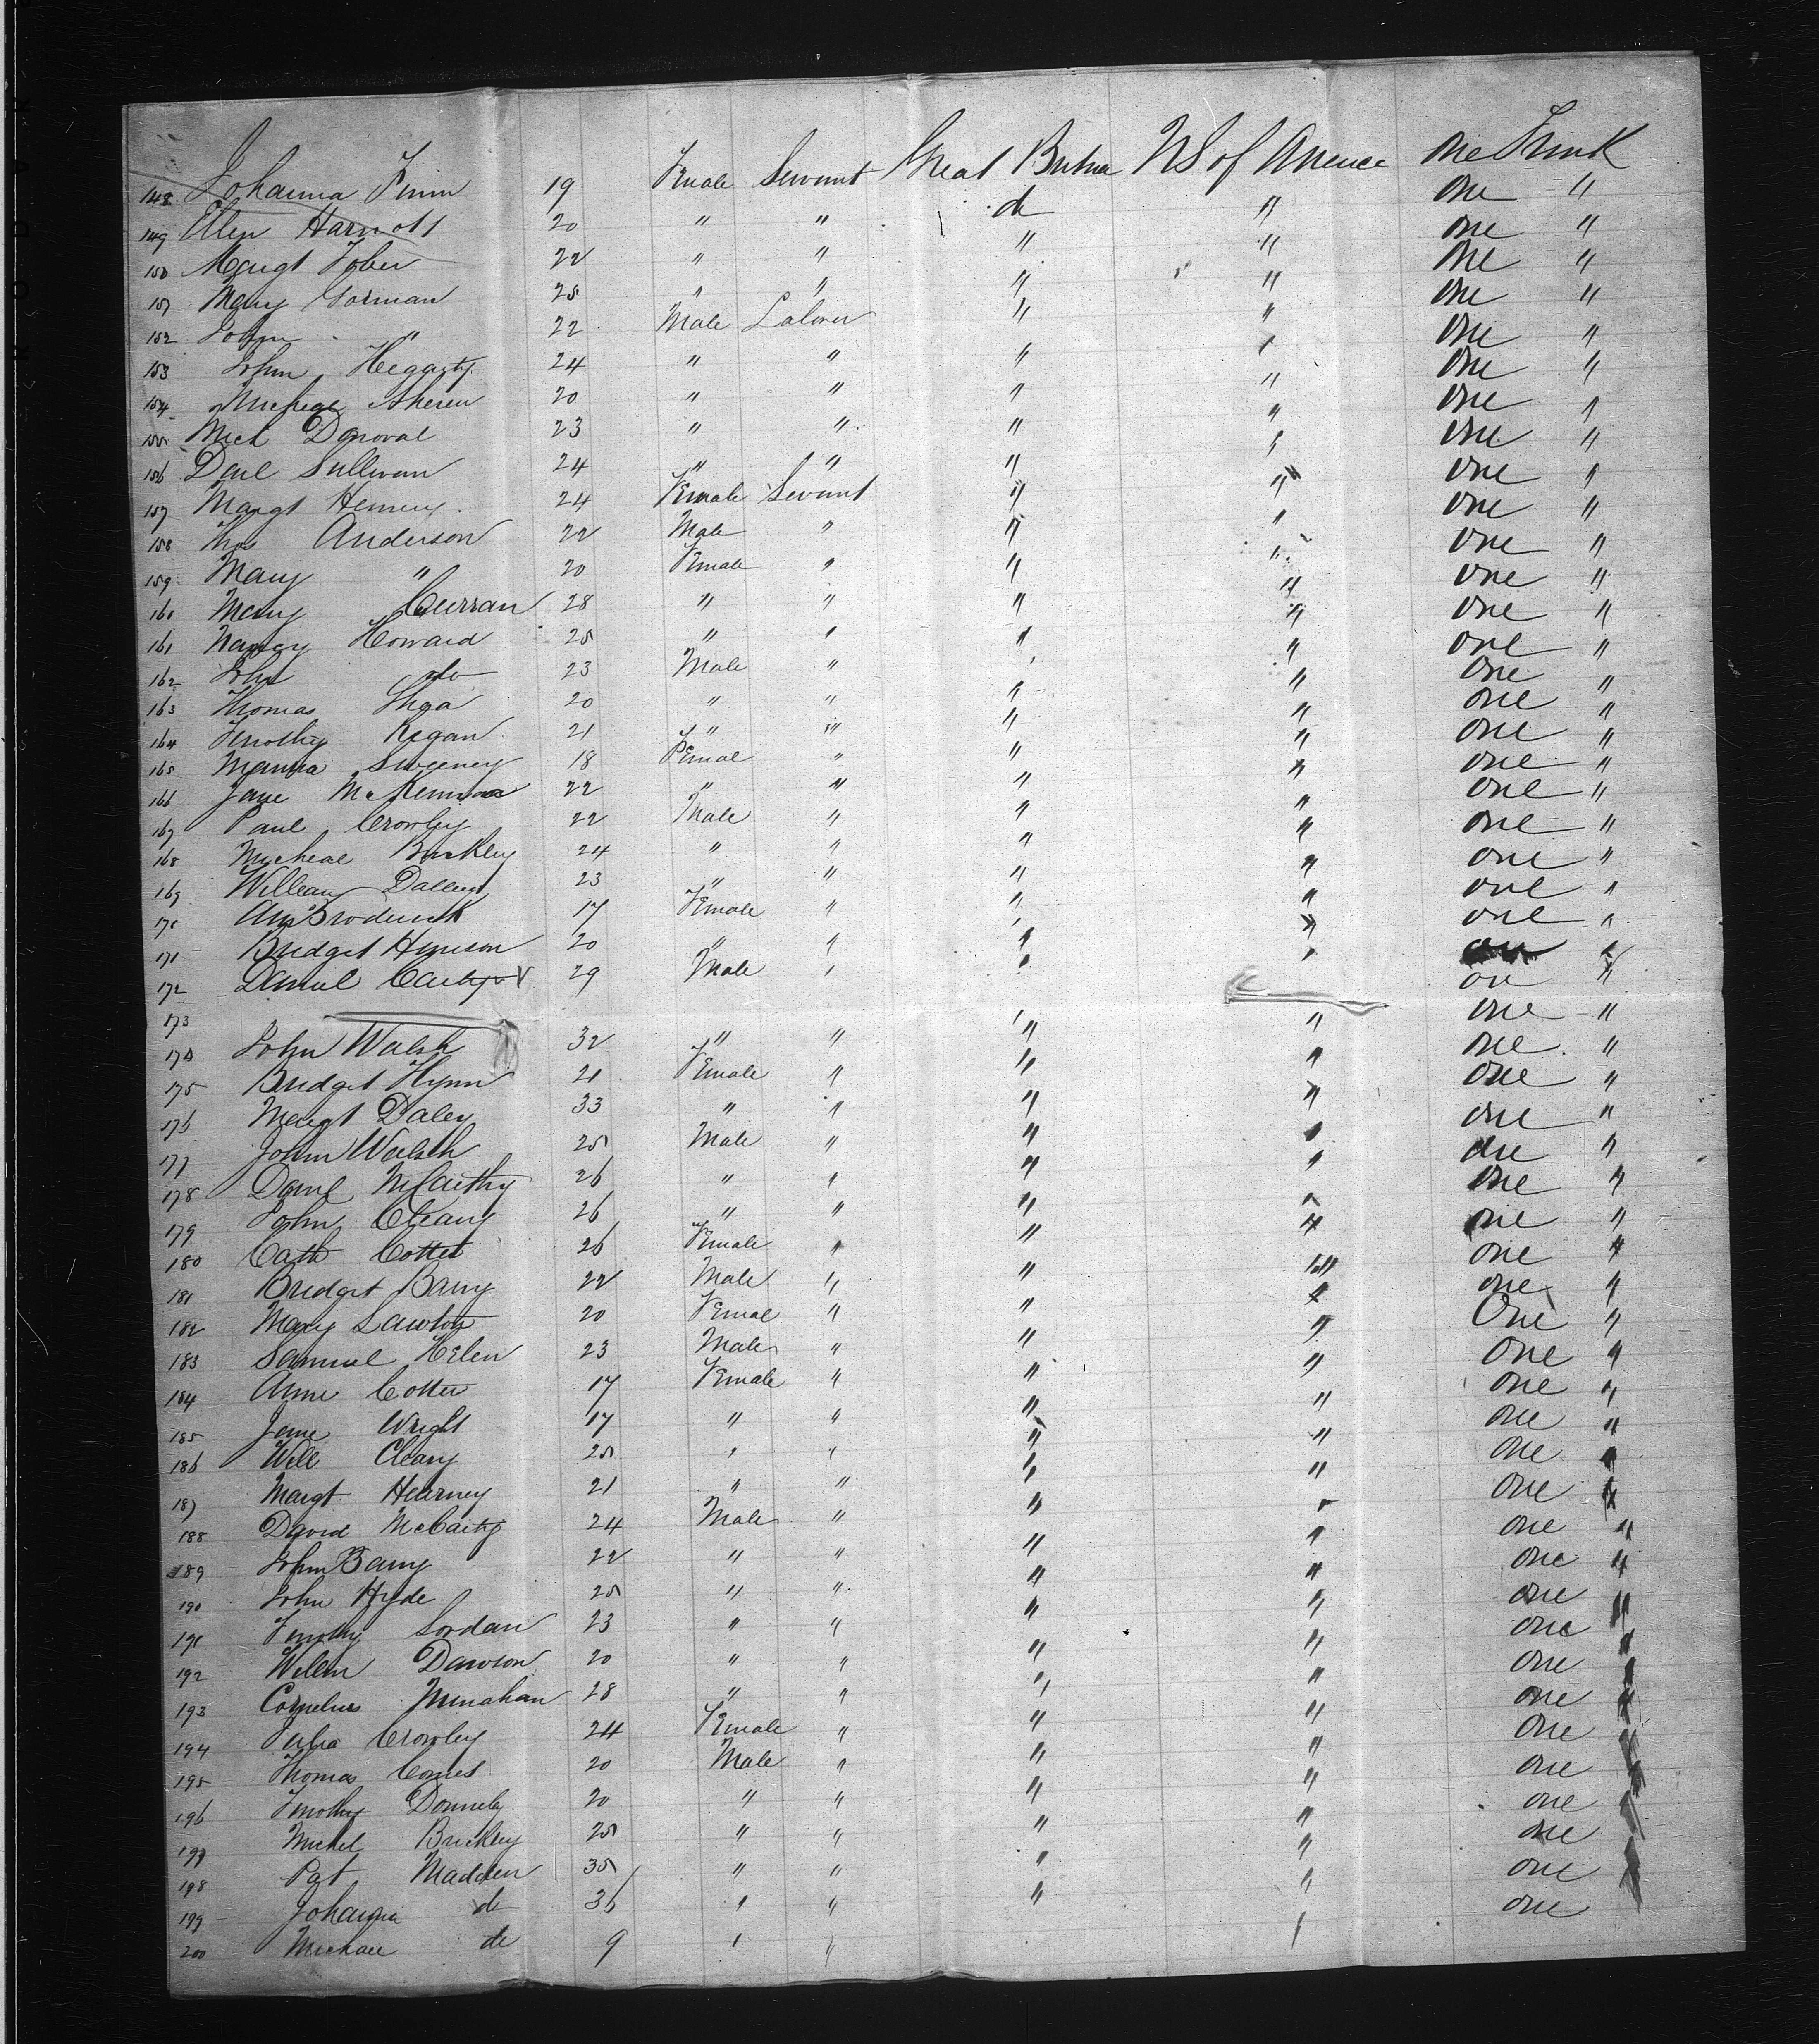 148 Johanna Finn 19 Female Servant Great Britan US of America one Trunk
149 Ellen Harnott 20 " " do " one "
150 Margt Tobin 22 " " " " one "
151 Mary Gorman 25 " " " " one "
152 John " 22 Male Laborer " " one "
153 John Heggarty 24 " " " " one "
154 Aheren 20 " " " " one "
155 Mich Donoval 23 " " " " one "
156 Danl Sullivan 24 " " " " one "
157 Margt 24 Female Servant " " one "
158 Thos Anderson 22 Male " " " one "
159 Mary " 20 Female " " " one "
160 Mary Curran 28 " " " " one "
161 Howard 25 " " " " one "
162 John do 23 Male " " " one "
163 Thomas Shea 20 " " " " one "
164 Timothy Regan 21 " " " " one "
165 Sweeney 18 Femal " " " one "
166 Jane 22 " " " " one "
167 Paul Crowley 22 Male " " " one "
168 Micheal Buckley 24 " " " " one "
169 William 23 " " " " one "
170 Ann Broderick 17 Female " " " one "
171 Bridget 20 " " " "
172 Daniel 29 Male " " " on "
173 one "
174 John Walsh 32 " " " " one "
175 Bridget Flynn 21 Female " " " one "
176 Margt Daley 33 " " " " one "
177 John Walsh 25 Male " " " one "
178 Danl McCarthy 26 " " " " one "
179 John Cleary 26 " " " " one "
180 Cath Cotter 26 Female " " " one "
181 Bridget Barry 22 Male " " " one "
182 Mary Lawton 20 Femal " " " One "
183 Samuel 23 Male " " " one "
184 Anne Cotter 17 Female " " " one "
185 Jane Wright 17 " " " " one "
186 Will Cleary 25 " " " " one "
187 Margt Hearney 21 " " " " one "
188 David McCarty 24 Male " " " one "
189 John Barry 22 " " " " one "
190 John Hyde 25 " " " " one "
191 Timothy Jordan 23 " " " " one "
192 Willm Dawson 20 " " " " one "
193 Cornelius 28 " " " " one "
194 Julia Crowley 24 Female " " " one "
195 Thomas 20 Male " " " one "
196 Timothy Donnely 20 " " " " one "
197 Michel Buckley 25 " " " " one "
198 Pat Madden 35 " " " " one "
199 Johanna do 36 " " " " one
200 Michael do 9 " " "